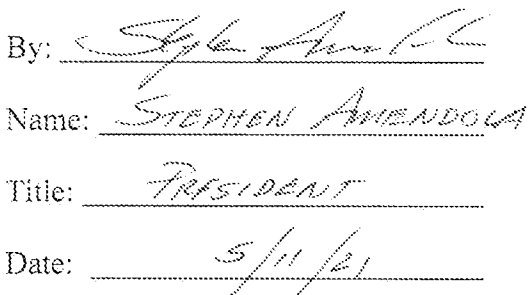 By:
Name: STEPHEN AMENDOLA
Title: PRESIDENT
Date: 5/11/21